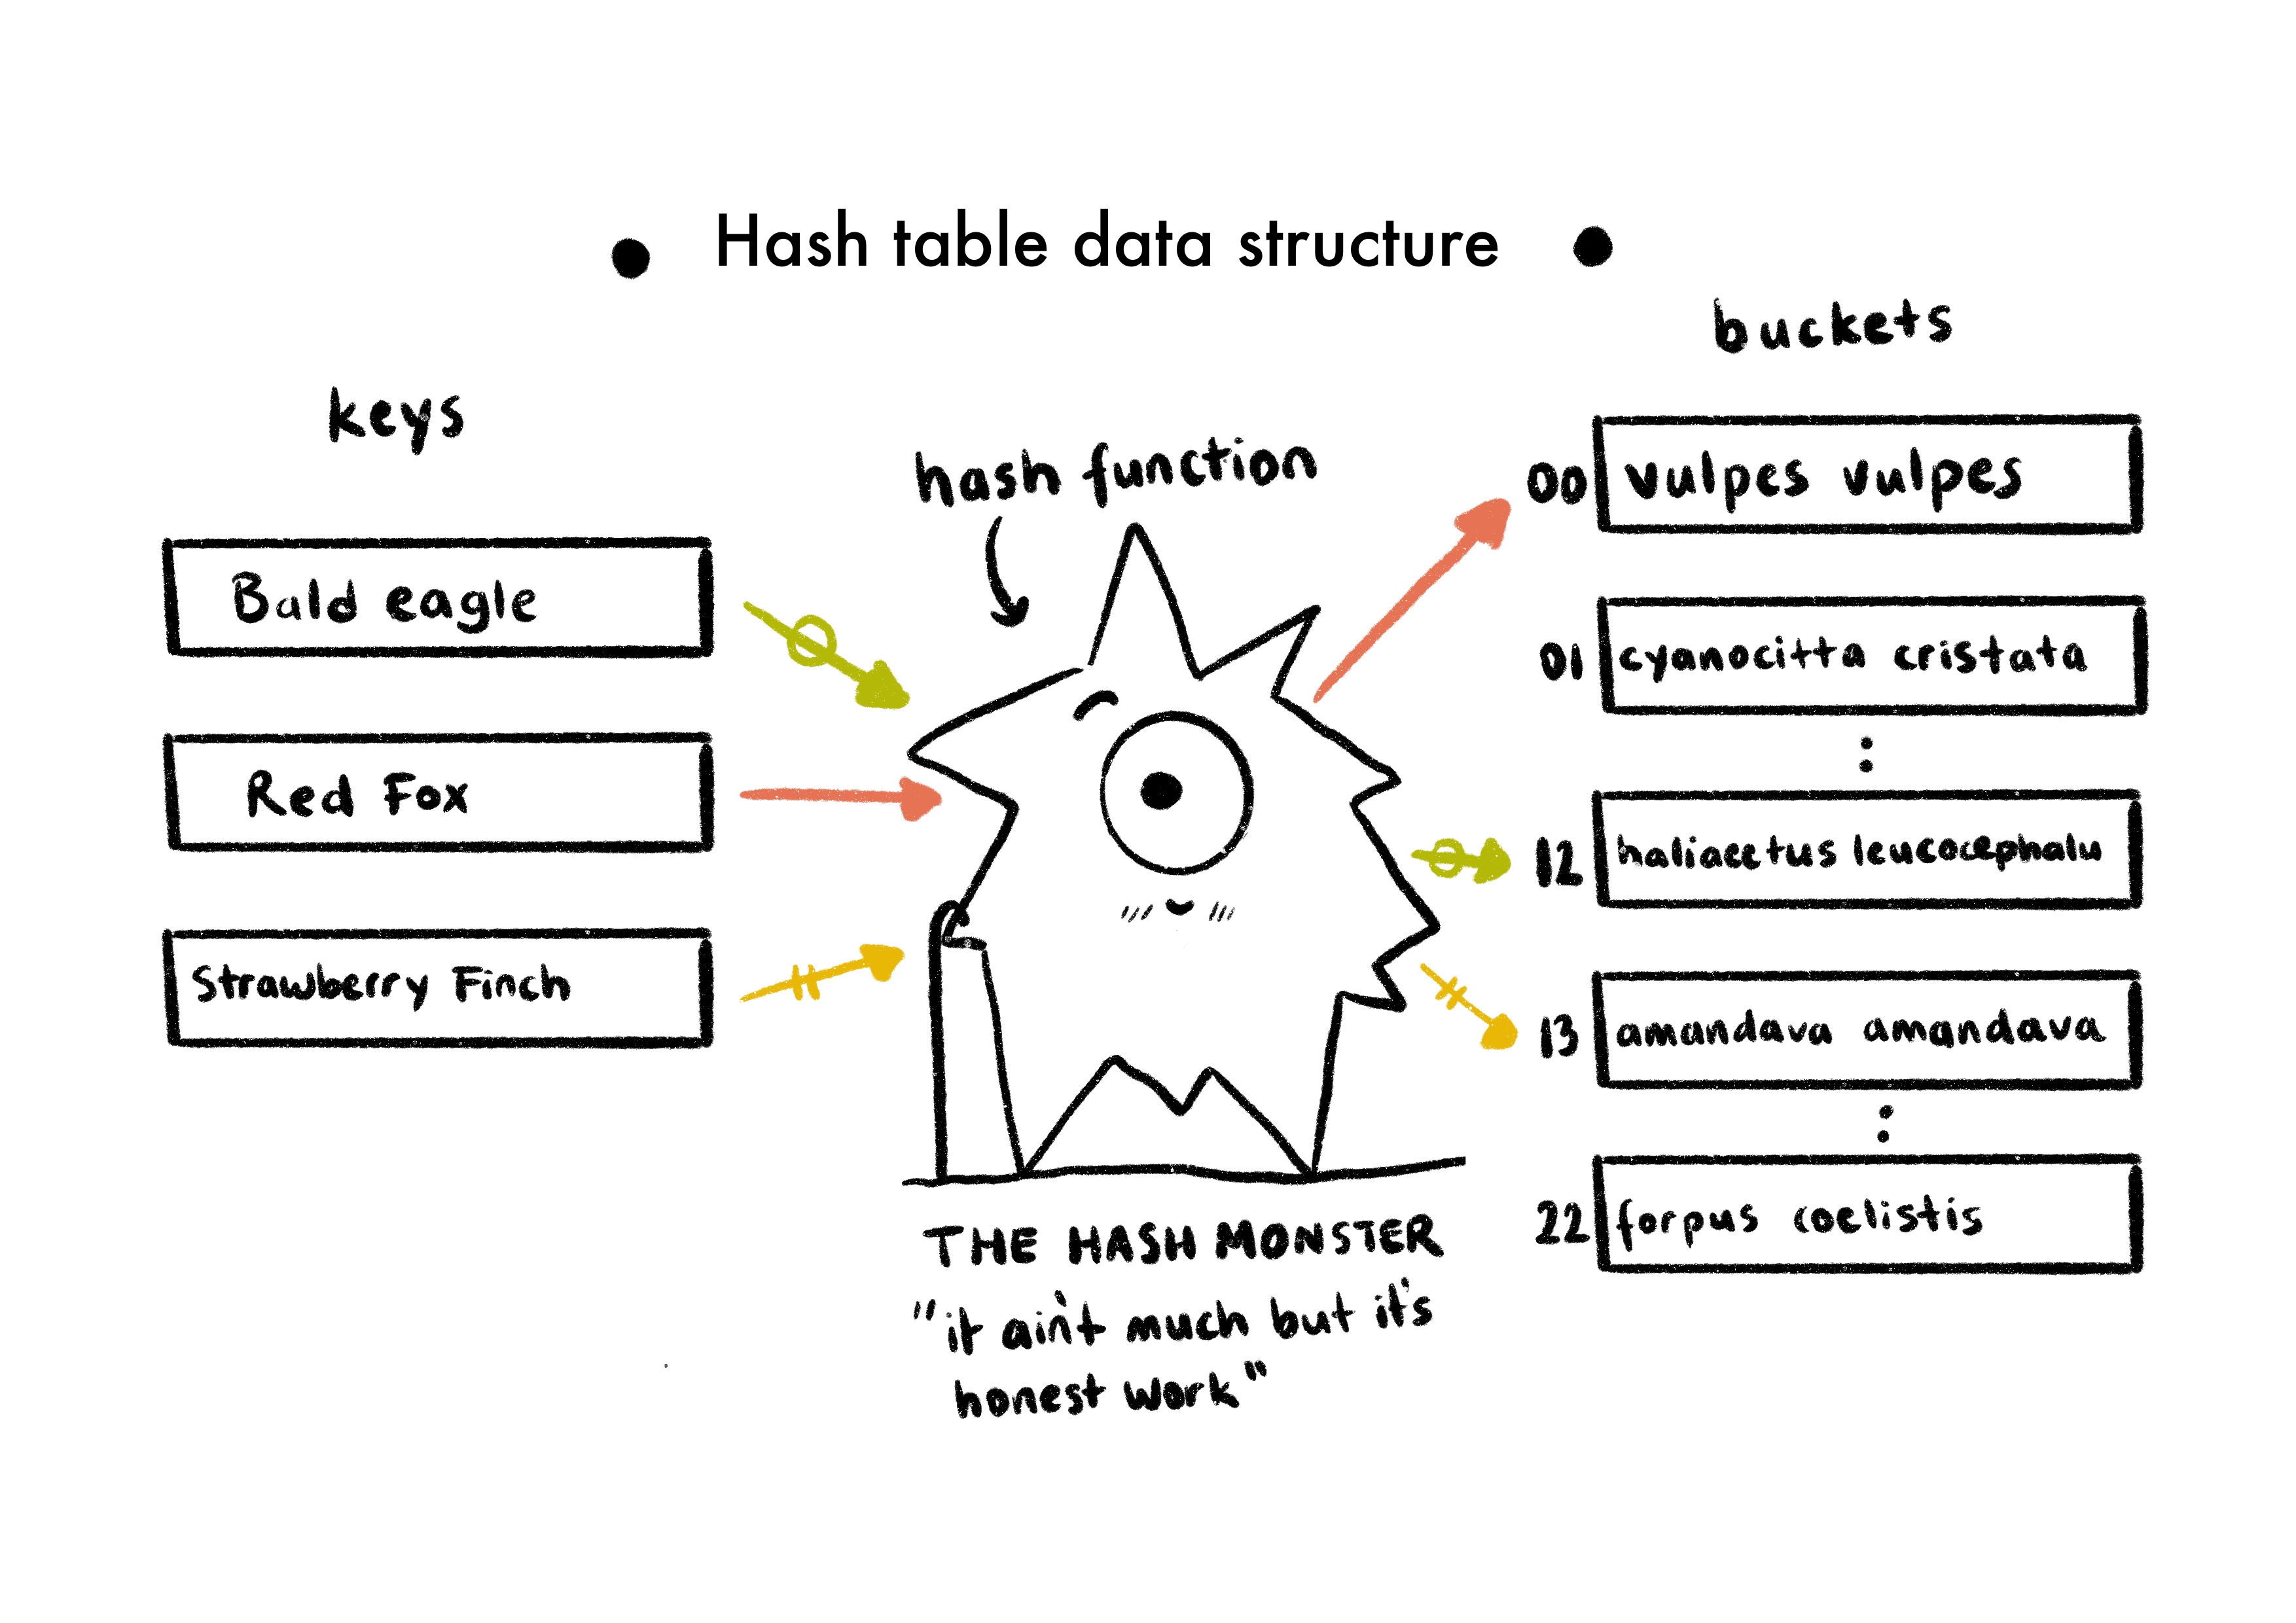 Hash table data structure
keys
Bald eagle
Red Fox
Strawberry Finch
hash function
THE HASH MONSTER
"it ain't much but it's
honest work"
buckets
00 vulpes vulpes
01 cyanocitta cristata
:
12 haliaeetus leucocephalu
13 amandava amandava
:
22 forpus coelistis